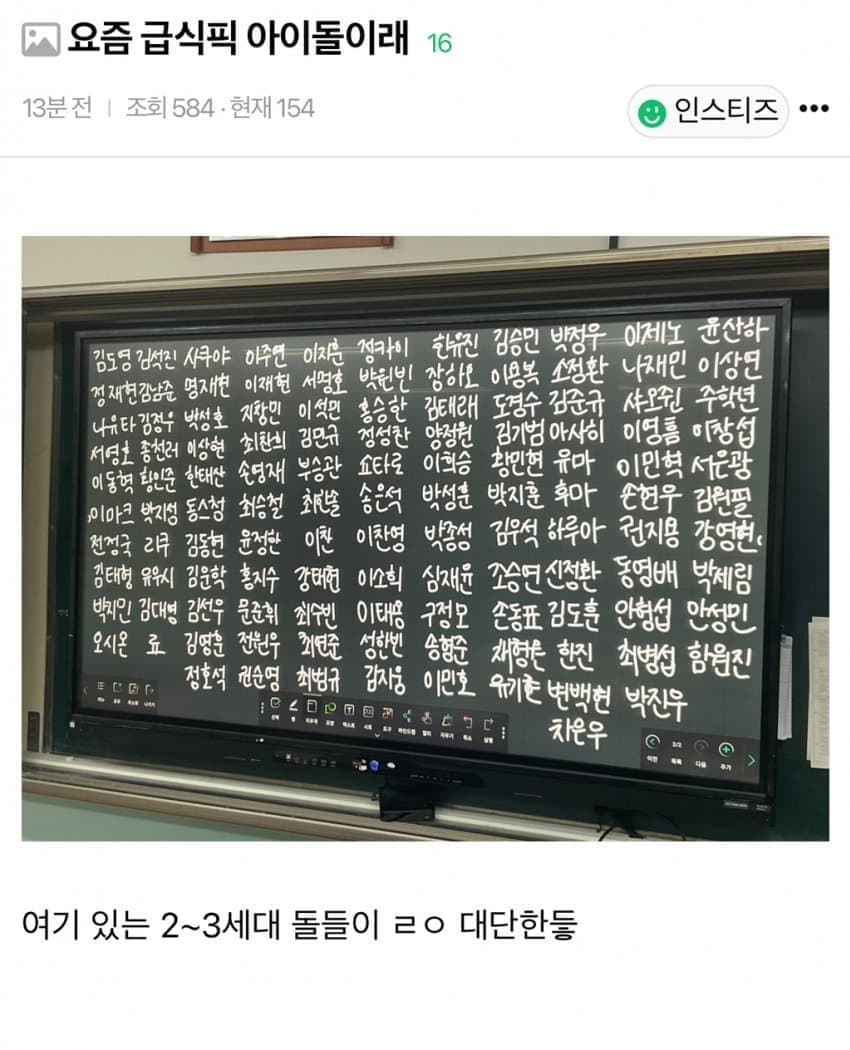 요즘 급식픽 아이돌이래 16
13분 전 | 조회 584 · 현재 154
인스티즈
김도영 김석진 사쿠야 이주연 이지훈 정카이 한유진 김승민 박정우 이제노 윤산하
정재현 김남준 명재현 이재현 서명호 박원빈 장하오 이용복 소정환 나재민 이상연
나유타 김정우 박성호 지창민 이석민 홍승한 김태래 도경수 김준규 샤오쥔 주학년
서영호 종천러 이상현 최찬희 김민규 정성찬 양정원 김기범 아사히 이영흠 이창섭
이동혁 황인준 한태산 손영재 부승관 쇼타로 이희승 황민현 유마 이민혁 서은광
이마크 박지성 동스청 최승철 최한솔 송은석 박성훈 박지훈 후마 손현우 김원필
전정국 리쿠 김동현 윤정한 이찬 이찬영 박종성 김우석 하루아 권지용 강영현
김태형 유우시 김운학 홍지수 강태현 이소희 심재윤 조승연 신정환 동영배 박제림
박지민 김대영 김선우 문준휘 최수빈 이태용 구정모 손동표 김도훈 안형섭 안성민
오시온 료 김영훈 전원우 최연준 성한빈 송형준 채형원 한진 최병섭 함원진
정호석 권순영 최범규 김지웅 이민호 유기현 변백현 박진우
차은우
선택 펜 지우개 도형 텍스트 시트 도구 마인드맵 멀티 지우기 취소 실행
이전 2/2 목록 다음 추가
여기 있는 2~3세대 돌들이 ㄹㅇ 대단한듷